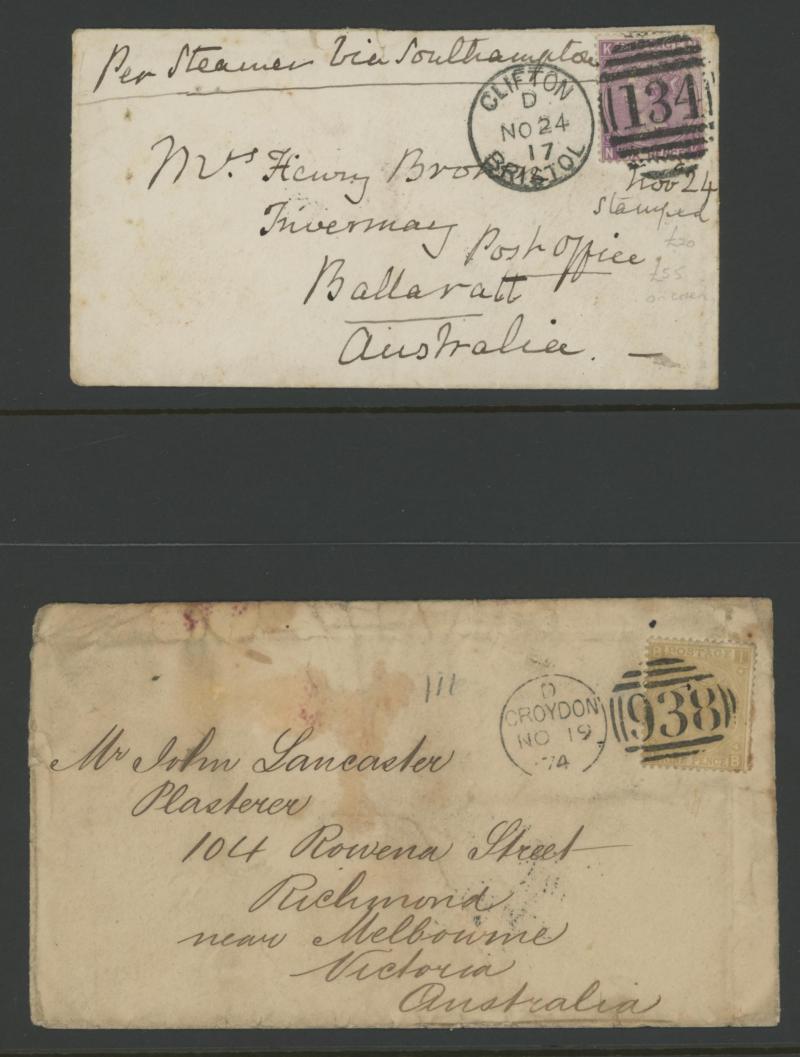 Per Steamer Via Southampton
CLIFTON
D
NO 24
17
BRISTOL
K
134
N
Mrs Henry
Nov 24
stamped
Invermay Post office
£20
Ballaratt
£55
on cover
Australia. —
111
POSTAGE
I
D
CROYDON
NO 19
74
938
PENCE
B
Mr John Lancaster
Plasterer
104 Rowena Street
Richmond
near Melbourne
Victoria
Australia